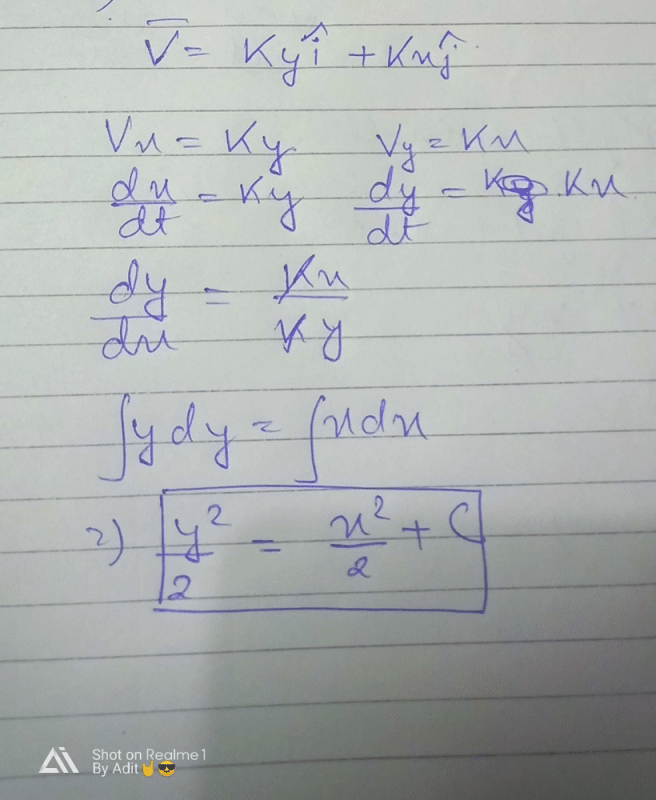 V̅ = Kyî + Kxĵ
Vx = Ky    Vy = Kx
dx/dt = Ky    dy/dt = Kx
dy/dx = Kx/Ky
∫y dy = ∫x dx
2) y²/2 = x²/2 + C
Shot on Realme 1
By Adit🤘😎